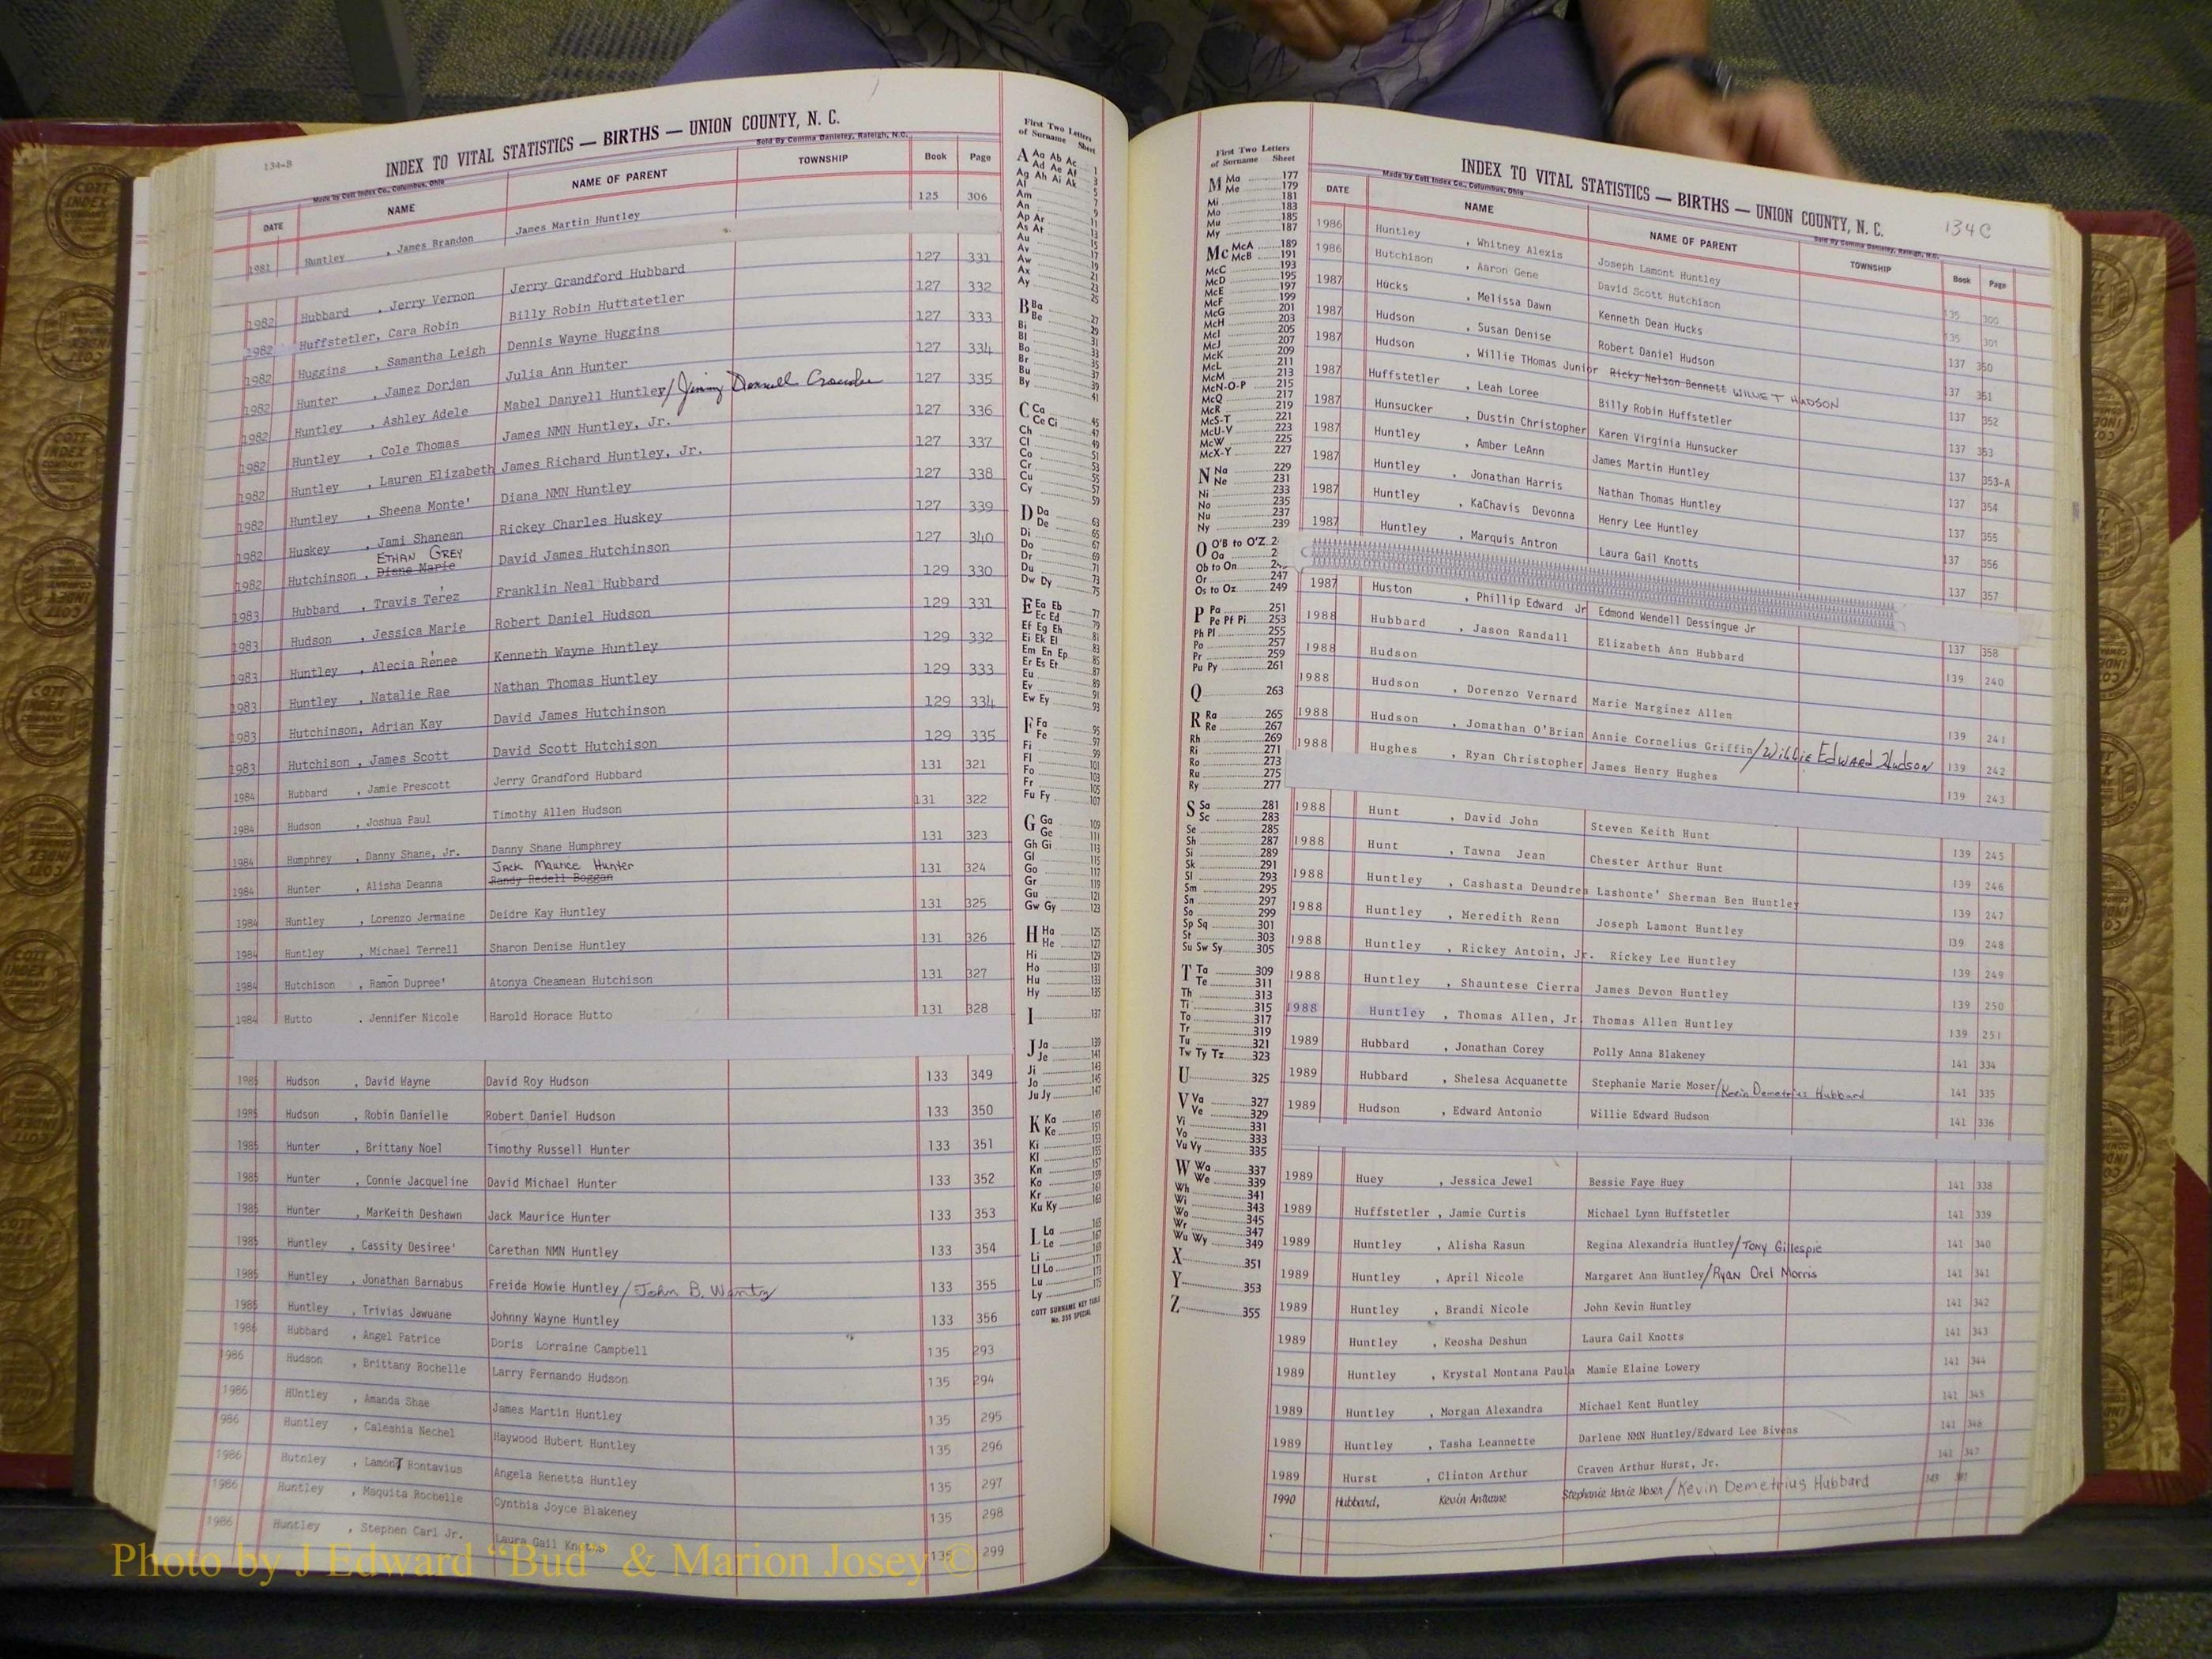 134-B
INDEX TO VITAL STATISTICS — BIRTHS — UNION COUNTY, N. C.
Made by Cott Index Co., Columbus, Ohio Sold By Comma Danieley, Raleigh, N.C.
DATE NAME NAME OF PARENT TOWNSHIP Book Page
1981 Huntley , James Brandon James Martin Huntley 125 306
1982 Hubbard , Jerry Vernon Jerry Grandford Hubbard 127 331
1982 Huffstetler, Cara Robin Billy Robin Huttstetler 127 332
1982 Huggins , Samantha Leigh Dennis Wayne Huggins 127 333
1982 Hunter , Jamez Dorjan Julia Ann Hunter 127 334
1982 Huntley , Ashley Adele Mabel Danyell Huntley/Jimmy Darnell Crowder 127 335
1982 Huntley , Cole Thomas James NMN Huntley, Jr. 127 336
1982 Huntley , Lauren Elizabeth James Richard Huntley, Jr. 127 337
1982 Huntley , Sheena Monte' Diana NMN Huntley 127 338
1982 Huskey , Jami Shanean Rickey Charles Huskey 127 339
ETHAN GREY
1982 Hutchinson , Diane Marie David James Hutchinson 127 340
1983 Hubbard , Travis Terez Franklin Neal Hubbard 129 330
1983 Hudson , Jessica Marie Robert Daniel Hudson 129 331
1983 Huntley , Alecia Renee Kenneth Wayne Huntley 129 332
1983 Huntley , Natalie Rae Nathan Thomas Huntley 129 333
1983 Hutchinson, Adrian Kay David James Hutchinson 129 334
1983 Hutchison , James Scott David Scott Hutchison 129 335
1984 Hubbard , Jamie Prescott Jerry Grandford Hubbard 131 321
1984 Hudson , Joshua Paul Timothy Allen Hudson 131 322
1984 Humphrey , Danny Shane, Jr. Danny Shane Humphrey 131 323
Jack Maurice Hunter
1984 Hunter , Alisha Deanna Randy Redell Boggan 131 324
1984 Huntley , Lorenzo Jermaine Deidre Kay Huntley 131 325
1984 Huntley , Michael Terrell Sharon Denise Huntley 131 326
1984 Hutchison , Ramon Dupree' Atonya Cheamean Hutchison 131 327
1984 Hutto . Jennifer Nicole Harold Horace Hutto 131 328
1985 Hudson , David Wayne David Roy Hudson 133 349
1985 Hudson , Robin Danielle Robert Daniel Hudson 133 350
1985 Hunter , Brittany Noel Timothy Russell Hunter 133 351
1985 Hunter , Connie Jacqueline David Michael Hunter 133 352
1985 Hunter , MarKeith Deshawn Jack Maurice Hunter 133 353
1985 Huntley , Cassity Desiree' Carethan NMN Huntley 133 354
1985 Huntley , Jonathan Barnabus Freida Howie Huntley/John B. Wentz 133 355
1985 Huntley , Trivias Jawuane Johnny Wayne Huntley 133 356
1986 Hubbard , Angel Patrice Doris Lorraine Campbell 135 293
1986 Hudson , Brittany Rochelle Larry Fernando Hudson 135 294
1986 HUntley , Amanda Shae James Martin Huntley 135 295
986 Huntley , Caleshia Nechel Haywood Hubert Huntley 135 296
1986 Hutnley , LamonT Rontavius Angela Renetta Huntley 135 297
1986 Huntley , Maquita Rochelle Cynthia Joyce Blakeney 135 298
1986 Huntley , Stephen Carl Jr. Laura Gail Knotts 135 299
First Two Letters
of Surname Sheet
A Aa Ab Ac 1
Ad Ae Af 3
Ag Ah Ai Ak 5
Al 7
Am 9
An 11
Ap Ar 13
As At 15
Au 17
Av 19
Aw 21
Ax 23
Ay 25
B Ba 27
Be 29
Bi 31
Bl 33
Bo 35
Br 37
Bu 39
By 41
C Ca 45
Ce Ci 47
Ch 49
Cl 51
Co 53
Cr 55
Cu 57
Cy 59
D Da 63
De 65
Di 67
Do 69
Dr 71
Du 73
Dw Dy 75
E Ea Eb 77
Ec Ed 79
Ef Eg Eh 81
Ei Ek El 83
Em En Ep 85
Er Es Et 87
Eu 89
Ev 91
Ew Ey 93
F Fa 95
Fe 97
Fi 99
Fl 101
Fo 103
Fr 105
Fu Fy 107
G Ga 109
Ge 111
Gh Gi 113
Gl 115
Go 117
Gr 119
Gu 121
Gw Gy 123
H Ha 125
He 127
Hi 129
Ho 131
Hu 133
Hy 135
I 137
J Ja 139
Je 141
Ji 143
Jo 145
Ju Jy 147
K Ka 149
Ke 151
Ki 153
Kl 155
Kn 157
Ko 159
Kr 161
Ku Ky 163
L La 165
Le 167
Li 169
Ll Lo 171
Lu 173
Ly 175
COTT SURNAME KEY TABLE
No. 355 SPECIAL
First Two Letters
of Surname Sheet
M Ma 177
Me 179
Mi 181
Mo 183
Mu 185
My 187
Mc McA 189
McB 191
McC 193
McD 195
McE 197
McF 199
McG 201
McH 203
McI 205
McJ 207
McK 209
McL 211
McM 213
McN-O-P 215
McQ 217
McR 219
McS-T 221
McU-V 223
McW 225
McX-Y 227
N Na 229
Ne 231
Ni 233
No 235
Nu 237
Ny 239
O O'B to O'Z 2
Oa 2
Ob to On 24
Or 247
Os to Oz 249
P Pa 251
Pe Pf Pi 253
Ph Pl 255
Po 257
Pr 259
Pu Py 261
Q 263
R Ra 265
Re 267
Rh 269
Ri 271
Ro 273
Ru 275
Ry 277
S Sa 281
Sc 283
Se 285
Sh 287
Si 289
Sk 291
Sl 293
Sm 295
Sn 297
So 299
Sp Sq 301
St 303
Su Sw Sy 305
T Ta 309
Te 311
Th 313
Ti 315
To 317
Tr 319
Tu 321
Tw Ty Tz 323
U 325
V Va 327
Ve 329
Vi 331
Vo 333
Vu Vy 335
W Wa 337
We 339
Wh 341
Wi 343
Wo 345
Wr 347
Wu Wy 349
X 351
Y 353
Z 355
134C
INDEX TO VITAL STATISTICS — BIRTHS — UNION COUNTY, N. C.
Made by Cott Index Co., Columbus, Ohio Sold By Comma Danieley, Raleigh, N.C.
DATE NAME NAME OF PARENT TOWNSHIP Book Page
1986 Huntley , Whitney Alexis Joseph Lamont Huntley 135 300
1986 Hutchison , Aaron Gene David Scott Hutchison 135 301
1987 Hucks , Melissa Dawn Kenneth Dean Hucks 137 350
1987 Hudson , Susan Denise Robert Daniel Hudson 137 351
1987 Hudson , Willie THomas Junior Ricky Nelson Bennett WILLIE T HUDSON 137 352
1987 Huffstetler , Leah Loree Billy Robin Huffstetler 137 353
1987 Hunsucker , Dustin Christopher Karen Virginia Hunsucker 137 353-A
1987 Huntley , Amber LeAnn James Martin Huntley 137 354
1987 Huntley , Jonathan Harris Nathan Thomas Huntley 137 355
1987 Huntley , KaChavis Devonna Henry Lee Huntley 137 356
1987 Huntley , Marquis Antron Laura Gail Knotts 137 357
1987 Huston , Phillip Edward Jr Edmond Wendell Dessingue Jr 137 358
1988 Hubbard , Jason Randall Elizabeth Ann Hubbard 139 240
1988 Hudson
1988 Hudson , Dorenzo Vernard Marie Marginez Allen 139 241
1988 Hudson , Jomathan O'Brian Annie Cornelius Griffin/Willie Edward Hudson 139 242
1988 Hughes , Ryan Christopher James Henry Hughes 139 243
1988 Hunt , David John Steven Keith Hunt 139 245
1988 Hunt , Tawna Jean Chester Arthur Hunt 139 246
1988 Huntley , Cashasta Deundrea Lashonte' Sherman Ben Huntley 139 247
1988 Huntley , Meredith Renn Joseph Lamont Huntley 139 248
1988 Huntley , Rickey Antoin, Jr. Rickey Lee Huntley 139 249
1988 Huntley , Shauntese Cierra James Devon Huntley 139 250
1988 Huntley , Thomas Allen, Jr. Thomas Allen Huntley 139 251
1989 Hubbard , Jonathan Corey Polly Anna Blakeney 141 334
1989 Hubbard , Shelesa Acquanette Stephanie Marie Moser/Kevin Demetrius Hubbard 141 335
1989 Hudson , Edward Antonio Willie Edward Hudson 141 336
1989 Huey , Jessica Jewel Bessie Faye Huey 141 338
1989 Huffstetler , Jamie Curtis Michael Lynn Huffstetler 141 339
1989 Huntley , Alisha Rasun Regina Alexandria Huntley/Tony Gillespie 141 340
1989 Huntley , April Nicole Margaret Ann Huntley/Ryan Orel Morris 141 341
1989 Huntley , Brandi Nicole John Kevin Huntley 141 342
1989 Huntley , Keosha Deshun Laura Gail Knotts 141 343
1989 Huntley , Krystal Montana Paula Mamie Elaine Lowery 141 344
1989 Huntley , Morgan Alexandra Michael Kent Huntley 141 345
1989 Huntley , Tasha Leannette Darlene NMN Huntley/Edward Lee Bivens 141 346
1989 Hurst , Clinton Arthur Craven Arthur Hurst, Jr. 141 347
1990 Hubbard, Kevin Antwine Stephanie Marie Moser/Kevin Demetrius Hubbard 143
Photo by J Edward “Bud” & Marion Josey ©